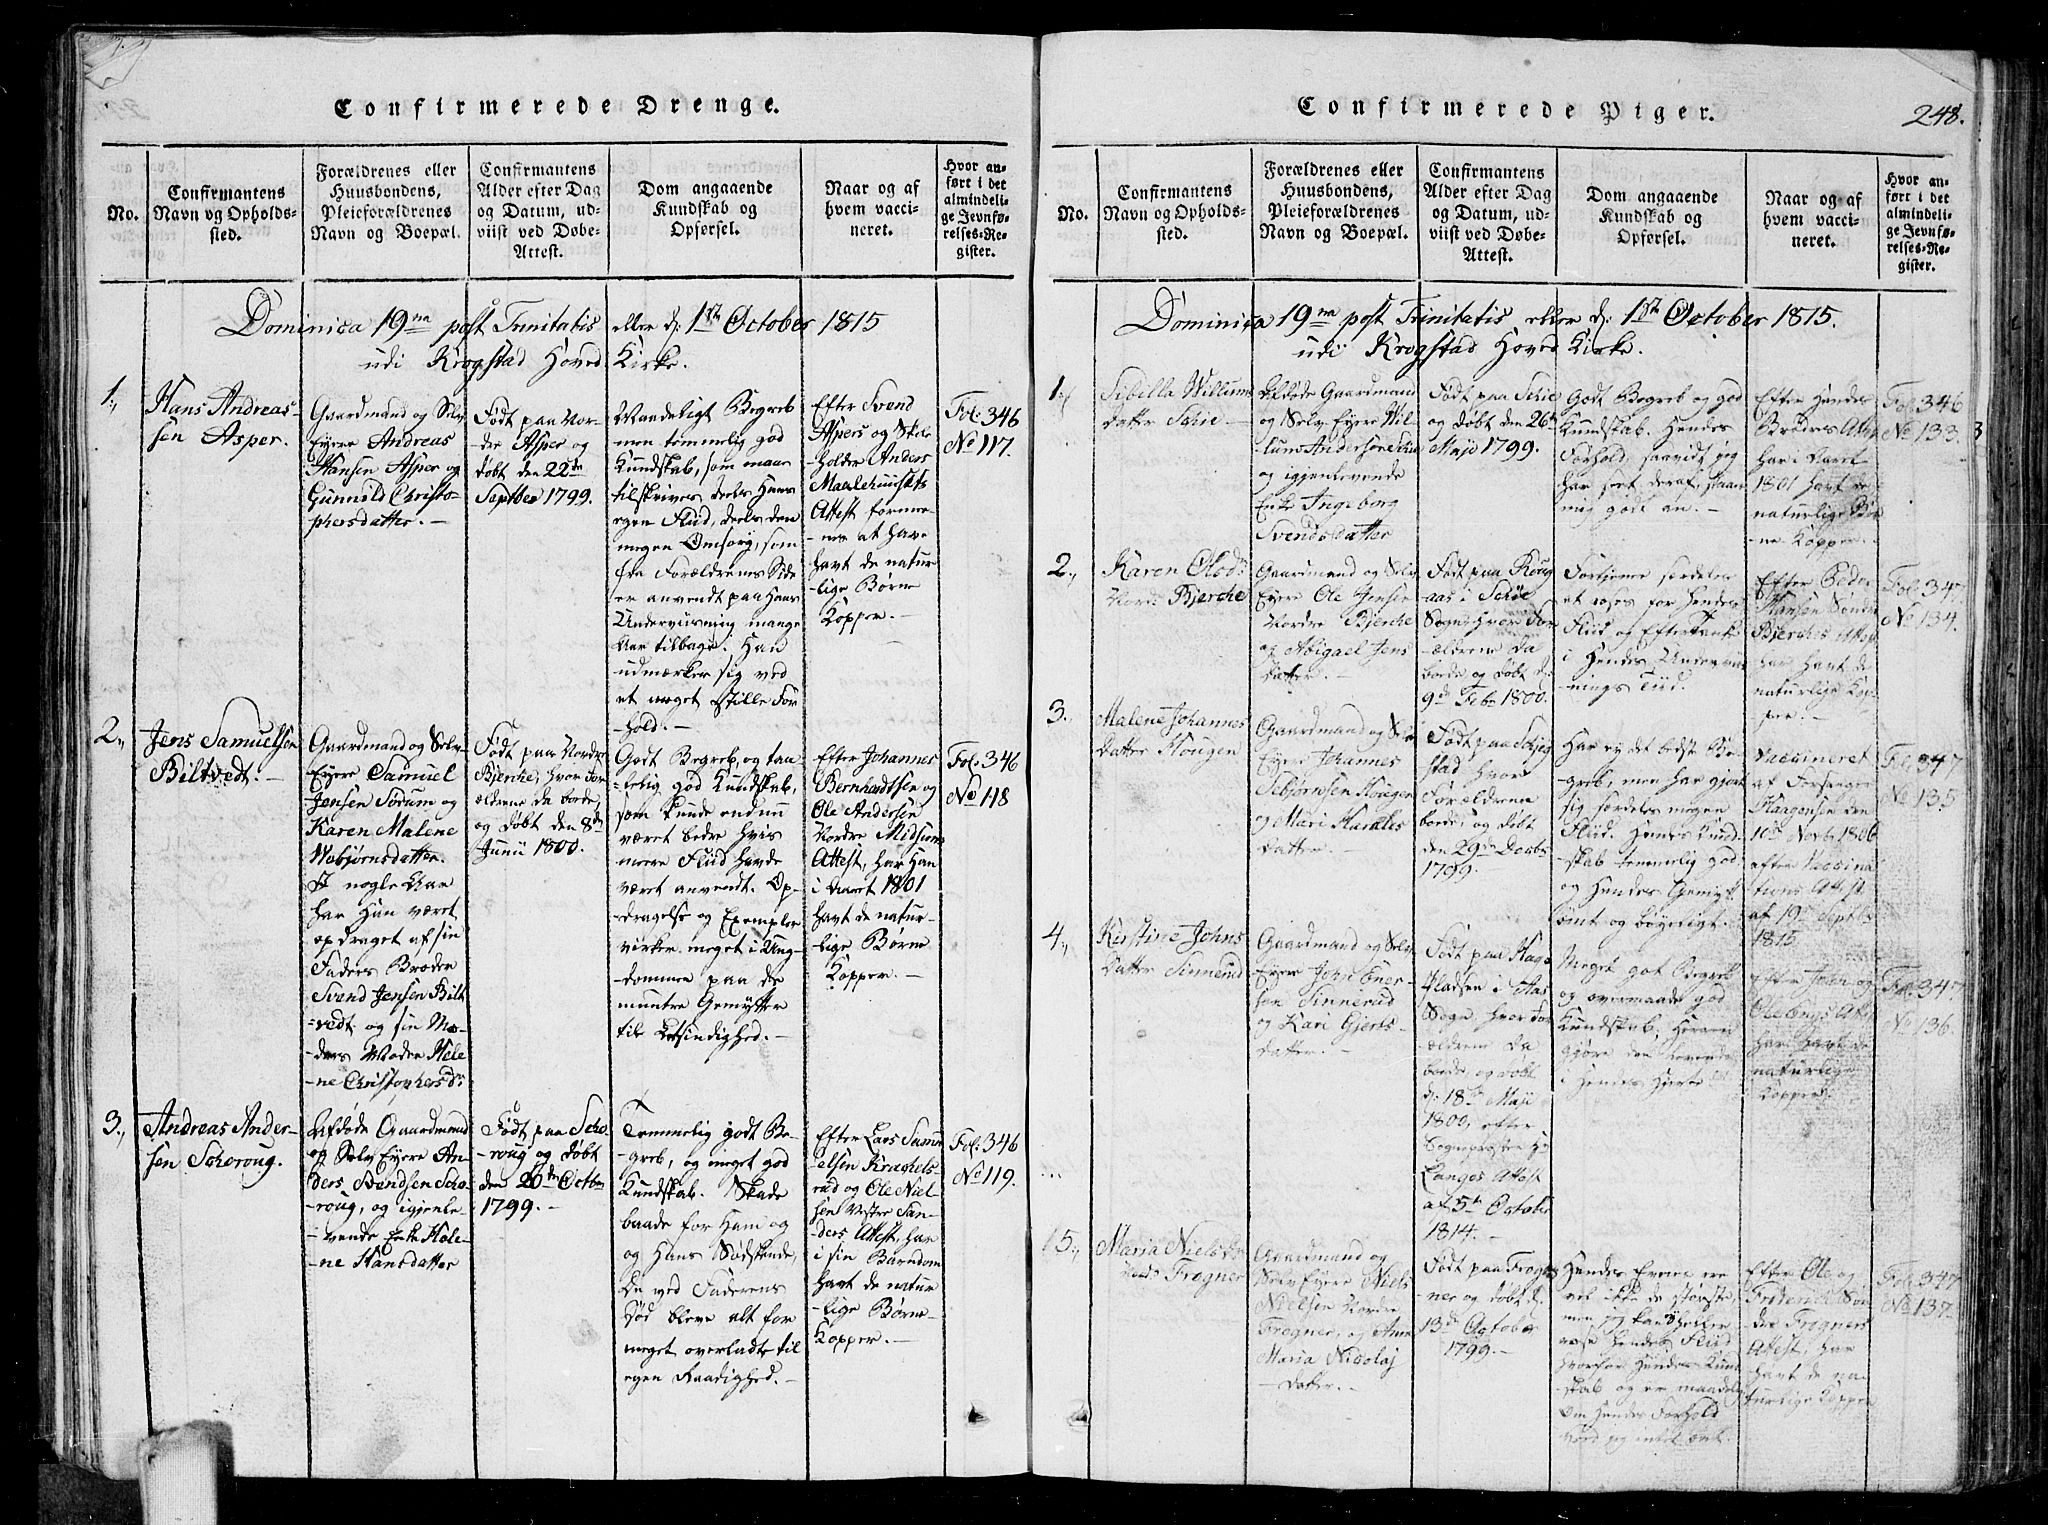 Confirmerede Drenge.
No.
Confirmantens
Navn og Opholds-
sted.
Forældrenes eller
Huusbondens,
Pleieforældrenes
Navn og Boepæl.
Confirmantens
Alder efter Dag
og Datum, ud-
viist ved Døbe-
Attest.
Dom angaaende
Kundskab og
Opførsel.
Naar og af
hvem vacci-
neret.
Hvor an-
ført i det
almindeli-
ge Jevnfø-
relses-Re-
gister.
Dominica 19na post Trinitatis eller d: 1ste October 1815
udi Krogstad Hoved Kirke.
1.,
Hans Andreas-
sen Asper.
Gaardmand og Selv
Eyere Andreas
Hansen Asper og
Gunnild Christo-
phersdatter.-
Født paa Nor-
dre Asper og
døbt den 22de
Septber 1799.
Maadeligt Begreb
men temmelig god
Kundskab, som maae
tilskrives deels Hans
egen Fliid, deels den
megen Omsorg, som
fra Forældrenes Side
er anvendt paa Hans
Underviisning mange
Aar tilbage. Han
udmærker sig ved
et meget stille For
-hold.-
Efter Svend
Aspers og Skole
holder Anders
Attest forme-
-ne at have
havt de natur
-lige Børne
Kopper.-
Fol: 346
No 117.
2.,
Jens Samuelsen
Biltvedt.-
Gaardmand og Selv
Eyere Samuel
Jensen Sørum og
Karen Malene
Webjørnsdatter.
I nogle Aar
har Han været
opdraget af sin
Faders Broder
Svend Jensen Bilt
=vedt og sin Mo-
-ders Moder Hele
-ne Christophersdr
Født paa Nordre
Bjerche, hvor For
ældrene da boede,
og døbt den 8de
Junii 1800.
Godt Begreb, og taa
-lelig god Kundskab,
som kunde endnu
været bedre hvis
meere Fliid havde
været anvendt. Op-
-dragelse og Exempler
virker meget i Ung-
-dommen paa de
muntre Gemytter
til Letsindighed.-
Efter Johannes
Bernhardtsen og
Ole Andersen
Nordre Midsem
Attest, har Han
i Aaret 1801
havt de natur-
-lige Børne
Kopper.-
Fol: 346
No 118
3.,
Andreas Ander-
sen Schoroug.
Afdøde Gaardmand
og Selv Eyere An-
ders Svendsen Scho-
-roug, og igjenle-
-vende Enke Hele-
-ne Hansdatter
Født paa Scho
-roug og døbt
den 26de Octbr
1799.-
Temmelig godt Be-
-greb, og meget god
Kundskab. Skade
baade for Ham og
og Hans Sødskende,
Da ved Faderens
Død bleve alt for
meget overladte til
egen Raadighed.-
Efter Lars Samu
elsen Kraghels-
rud og Ole Niel-
sen Vestre San-
ders Attest, har
i sin Barndom
havt de natur
-lige Børne
Kopper.-
Fol: 346
No 119.
Confirmerede Piger.
248.
No.
Confirmantens
Navn og Opholds-
sted.
Forældrenes eller
Huusbondens,
Pleieforældrenes
Navn og Boepæl.
Confirmantens
Alder efter Dag
og Datum, ud-
viist ved Døbe-
Attest.
Dom angaaende
Kundskab og
Opførsel.
Naar og af
hvem vacci-
neret.
Hvor an-
ført i det
almindeli-
ge Jevnfø-
relses-Re-
gister.
Dominica 19na post Trinitatis eller d: 1ste October 1815.
udi Krogstad Hoved Kirke.
1.,
Sibilla Willums
datter Schie-
Afdøde Gaardmand
og Selv Eyere Wil-
lum Andersen Schie
og igjenlevende
Enke Ingeborg
Svendsdatter
Født paa Schie
og døbt den 26de
Maji 1799.
Godt Begreb og god
Kundskab. Hendes
Forhold, saavidt jeg
har seet deraf, staar
mig godt an.-
Efter Hendes
Broders Attest
har i Aaret
1801 havt de
naturlige Bør
-ne Kopper.-
Fol: 346
No 133.
2.,
Karen Olsdr
Nordr Bjerche
Gaardmand og Selv
Eyere Ole Jensen
Nordre Bjerche
og Abigael Jens
datter.-
Født paa Roug
aas i Schie
Sogn, hvor For
ældrene da
boede og døbt d:
9de Febr 1800.
Fortjener særdeles
at roses for Hendes
Fliid og Eftertanke
i Hendes Underviis
-nings Tiid.
Efter Peder
Hansen Søndre
Bjerches Attest
har havt de
naturlige Kop-
-per.-
Fol: 347
No 134.
3.,
Malene Johannes
datter Hougen
Gaardmand og Selv
Eyere Johannes
Sebjørnsen Hougen
og Mari Haralds
datter.-
Født paa
stad hvor
Forældrene
boede, og døbt
den 29de Decbr
1799.-
Har ej det bedste Be-
greb, men har gjort
sig særdeles megen
Fliid. Hendes Kund-
skab temmelig god
og Hendes Gemyt
ømt og bøyeligt.-
Vaccineret
af Forsanger
Haagensen den
10de Novbr 1806
efter Vaccina-
tions Attest
af 19de Septbr
1815.
Fol: 347
No 135
4.,
Kirstine Johns
datter Sinnerud
Gaardmand og Selv
Eyere John Ener-
sen Sinnerud
og Kari Gjerts-
datter.-
Født paa Hage
Pladsen i Aas
Sogn, hvor For
ældrene da
boede, og døbt
d: 18de Maji
1800, efter
Sognepræsten Hr
Langes Attest
af 5te October
1814.-
Meget got Begreb
og overmaade god
Kundskab,
gjøre den levende
i Hendes Hjerte
Efter John og
Attest
har havt de
naturlige
Kopper.
Fol: 347
No 136
5.,
Maria Nielsdr
Nordr Frogner
Gaardmand og
Selv Eyere Niels
Nielsen Nordre
Frogner, og Anne
Maria Nicolaj
-datter.-
Født paa Frog-
ner og døbt d:
13de October
1799.-
Hendes Evner ere
vel ikke de største,
men jeg kand heller
rose Hendes Fliid
hvorfor Hendes Kund
-skab og er maadelig
om Hendes Forhold
veed jeg intet ondt.
Efter Ole og
Friderich Søn-
dre Frogners
Attest, har
havt de na-
turlige Kopper
Fol: 347
No 137